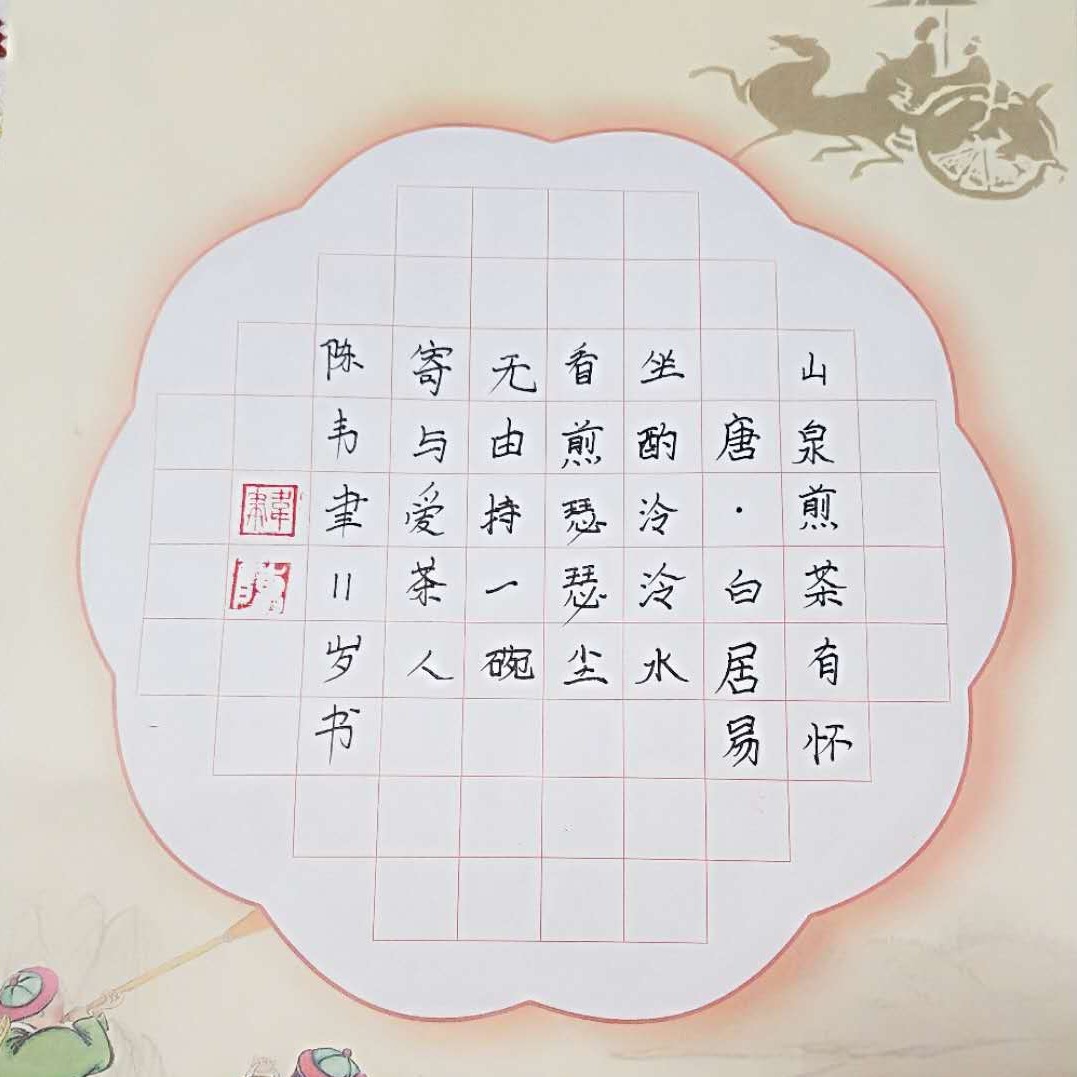 山泉煎茶有怀
唐·白居易
坐酌泠泠水
看煎瑟瑟尘
无由持一碗
寄与爱茶人
陈韦聿11岁书